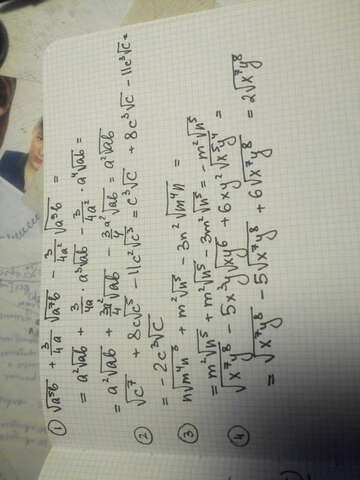 ① √a⁵b + 3/4a √a⁷b − 3/4a² √a⁹b =
= a²√ab + 3/4a · a³√ab − 3/4a² · a⁴√ab =
= a²√ab + 3a²/4 √ab − 3a²/4 √ab = a²√ab
② √c⁷ + 8c√c⁵ − 11c²√c³ = c³√c + 8c³√c − 11c³√c =
= −2c³√c
③ n√m⁴n³ + m²√n⁵ − 3n²√m⁴n =
= m²√n⁵ + m²√n⁵ − 3m²√n⁵ = −m²√n⁵
④ √x⁷y⁸ − 5x³y√xy⁶ + 6xy²√x⁵y⁴ =
= √x⁷y⁸ − 5√x⁷y⁸ + 6√x⁷y⁸ = 2√x⁷y⁸